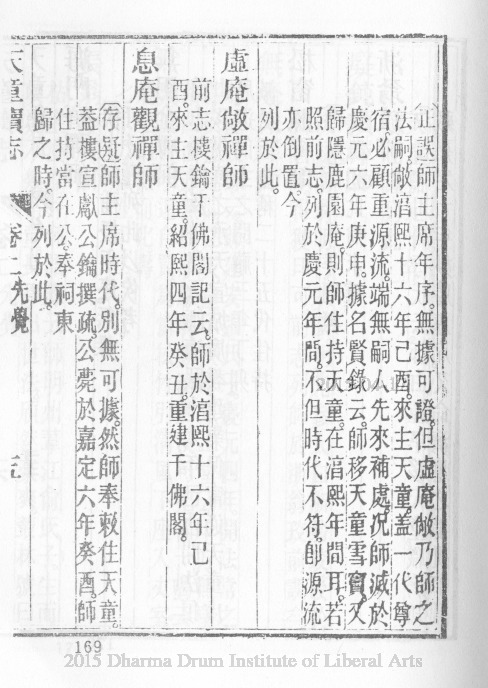 正誤師主席年序。無據可證。但虛庵敞乃師之
法嗣。敞湻熙十六年己酉。來主天童。蓋一代尊
宿。必顧重源流。端無嗣人先來補處。況師滅於
慶元六年庚申。據名賢錄云。師移天童雪竇。又
歸隱鹿園庵。則師住持天童。在湻熙年間耳。若
照前志。列於慶元年間。不但時代不符。卽源流
亦倒置。今
列於此。
虛庵敞禪師
前志樓鑰千佛閣記云。師於湻熙十六年己
酉。來主天童。紹熙四年癸丑。重建千佛閣。
息庵觀禪師
存疑師主席時代。別無可據。然師奉敕住天童。
葢樓宣獻公鑰撰疏。公薨於嘉定六年癸酉。師
住持當在公。奉祠東
歸之時。今列於此。
天童續志 卷二先覺 五
169
2015 Dharma Drum Institute of Liberal Arts